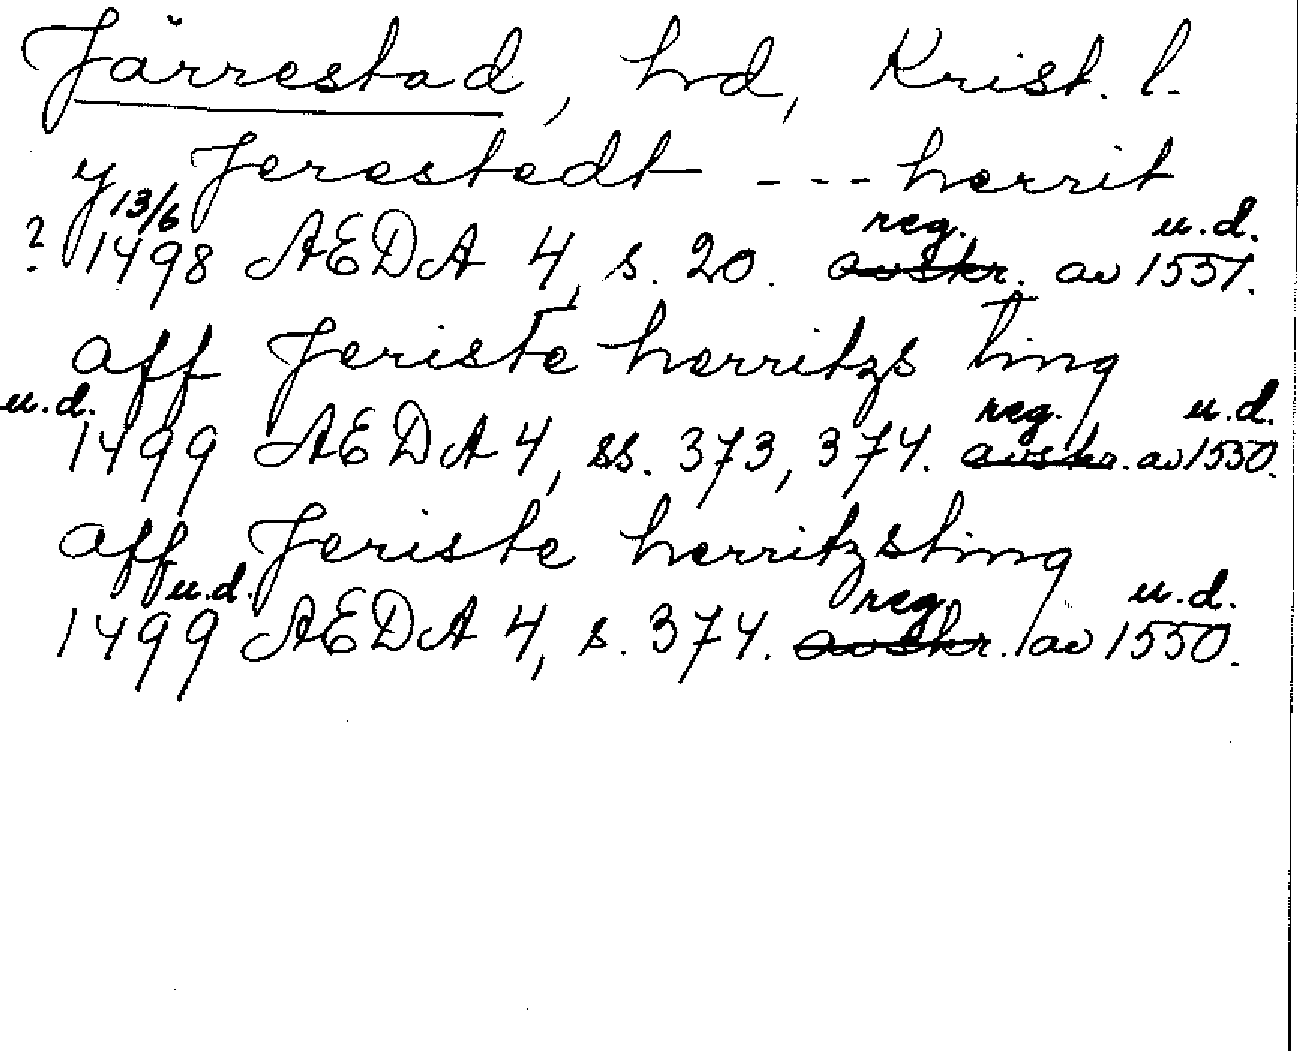 Järrestad, hd, Krist. l.
y Jerestedt --- herrit
? 13/6 1498 AEDA 4, s. 20. reg. avskr. av u.d. 1551.
aff Jeriste herritzs ting
u.d. 1499 AEDA 4, ss. 373, 374. reg. avskr. av u.d. 1550.
aff Jeriste herritzsting
u.d. 1499 AEDA 4, s. 374. reg. avskr. av u.d. 1550.